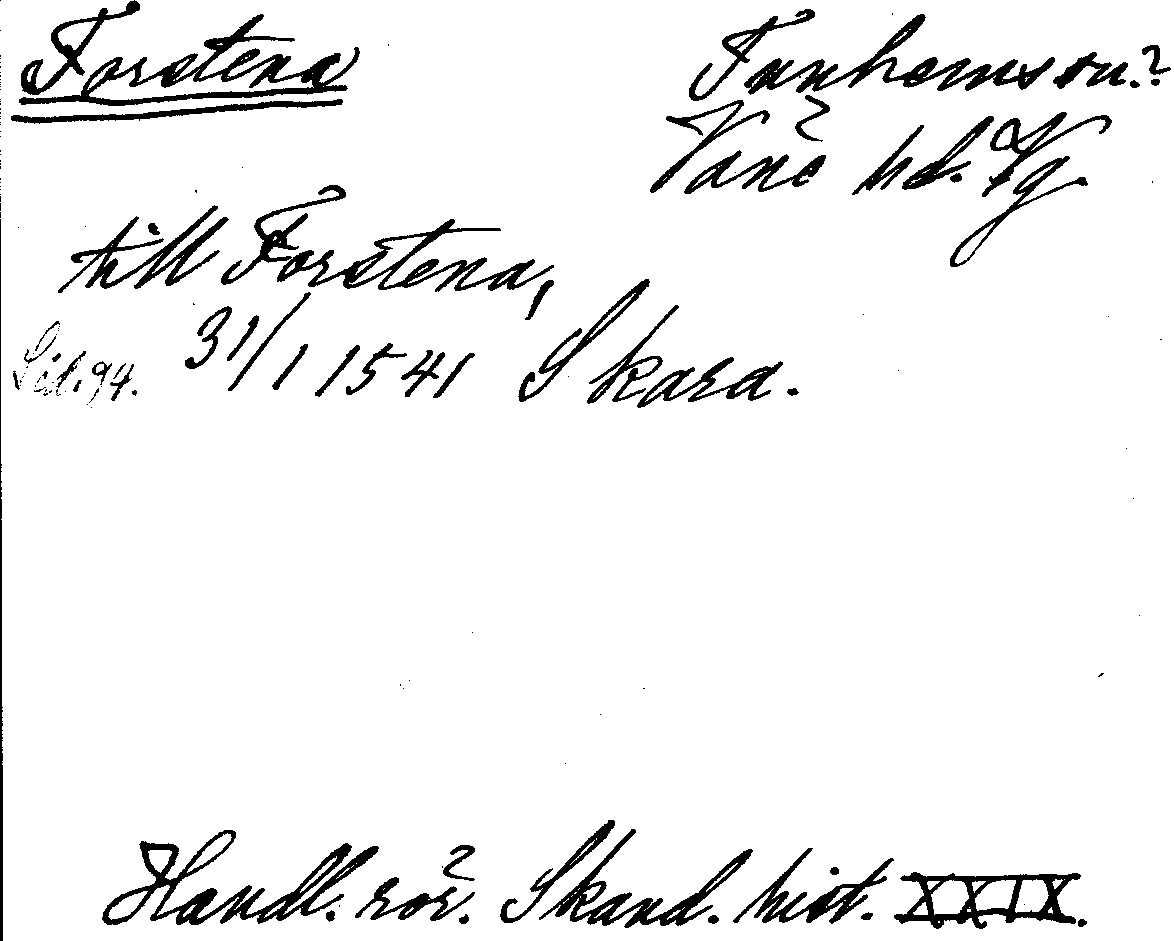 Forstena
Tunhems sn.?
Väne hd. Vg.
till Forstena,
Sid. 94. 31/1 1541 Skara.
Handl. rör. Skand. hist. XXIX.